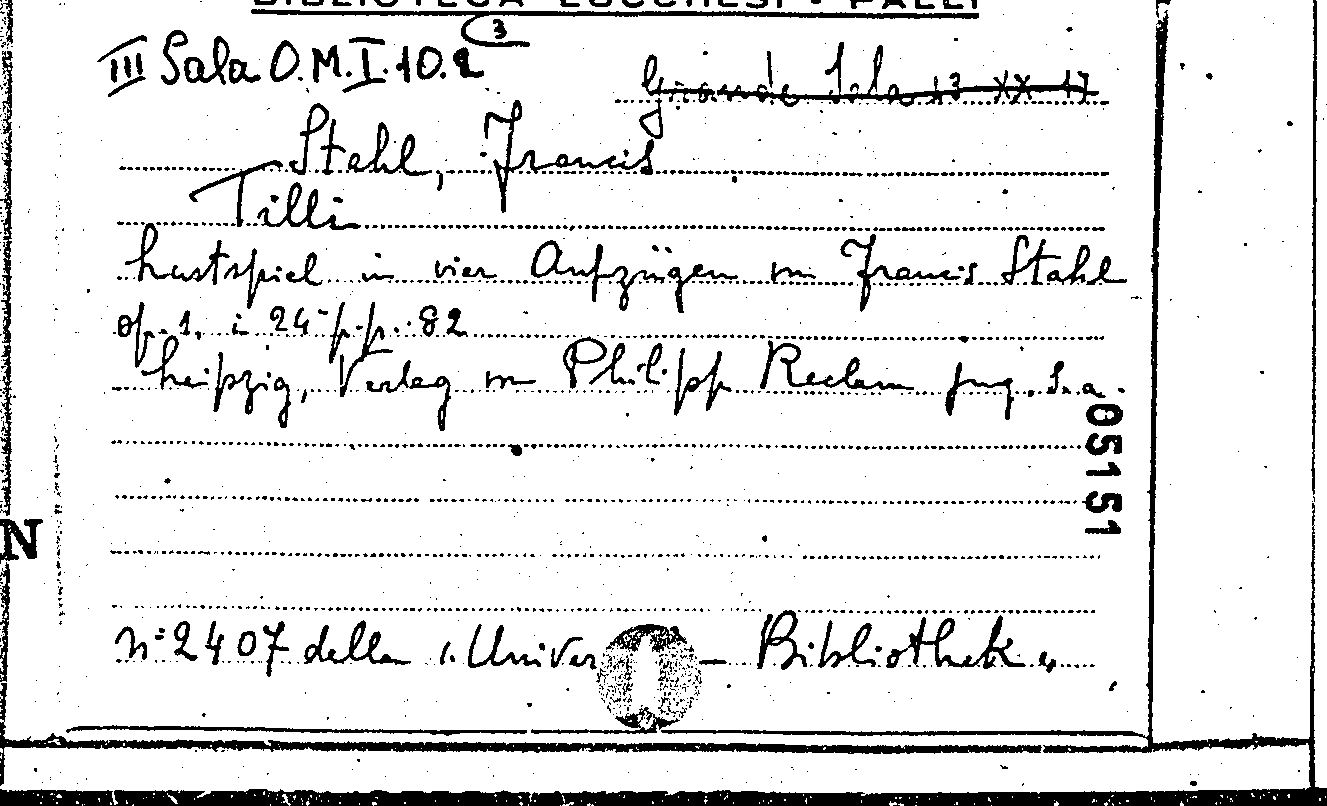 BIBLIOTECA LUCCHESI - PALLI
III Sala O.M.I.10.2 3
Grande Sala 13 XX 17
Stahl, Francis
Tilli
Lustspiel in vier Aufzügen von Francis Stahl
op. 1. in 24° p.p. 82
Leipzig, Verlag von Philipp Reclam jung. s.a.
05151
N
n° 2407 della "Univer - Bibliothek"